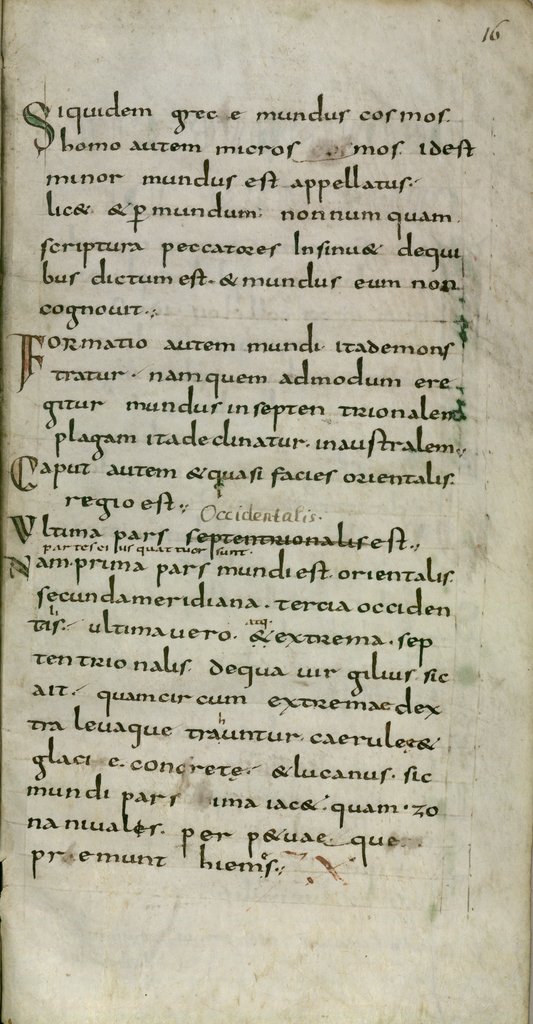 16
Siquidem grec e mundus cosmos.
homo autem micros mos. idest
minor mundus est appellatus.
lic& & p mundum. nonnumquam.
scriptura peccatores Insinu& dequi
bus dictum est. & mundus eum non
cognouit.
FORMATIO autem mundi. itademons
tratur. namquem admodum ere
gitur mundus inseptentrionalem
plagam itadeclinatur. inaustralem.
Caput autem & quasi facies orientalis.
regio est.
Occidentalis.
Vltima pars septentrionalis est.
partes ei ius quattuor sunt.
Nam. prima pars mundi est. orientalis.
secundameridiana. tercia occiden
tis. ultimauero. & extrema. sep
tentrionalis. dequa uir gilius sic
ait. quamcircum extremae dex
tra leuaque trahuntur. caerulee&
glaci e. concrete. & lucanus. sic
mundi pars ima iac&. quam. zo
na niualis. per p&uae que
pr.emunt hiemes.